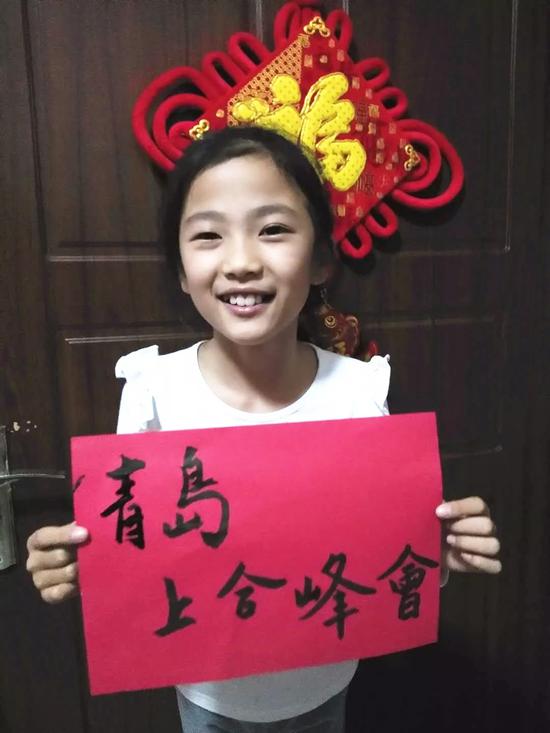 福
青島
上合峰會